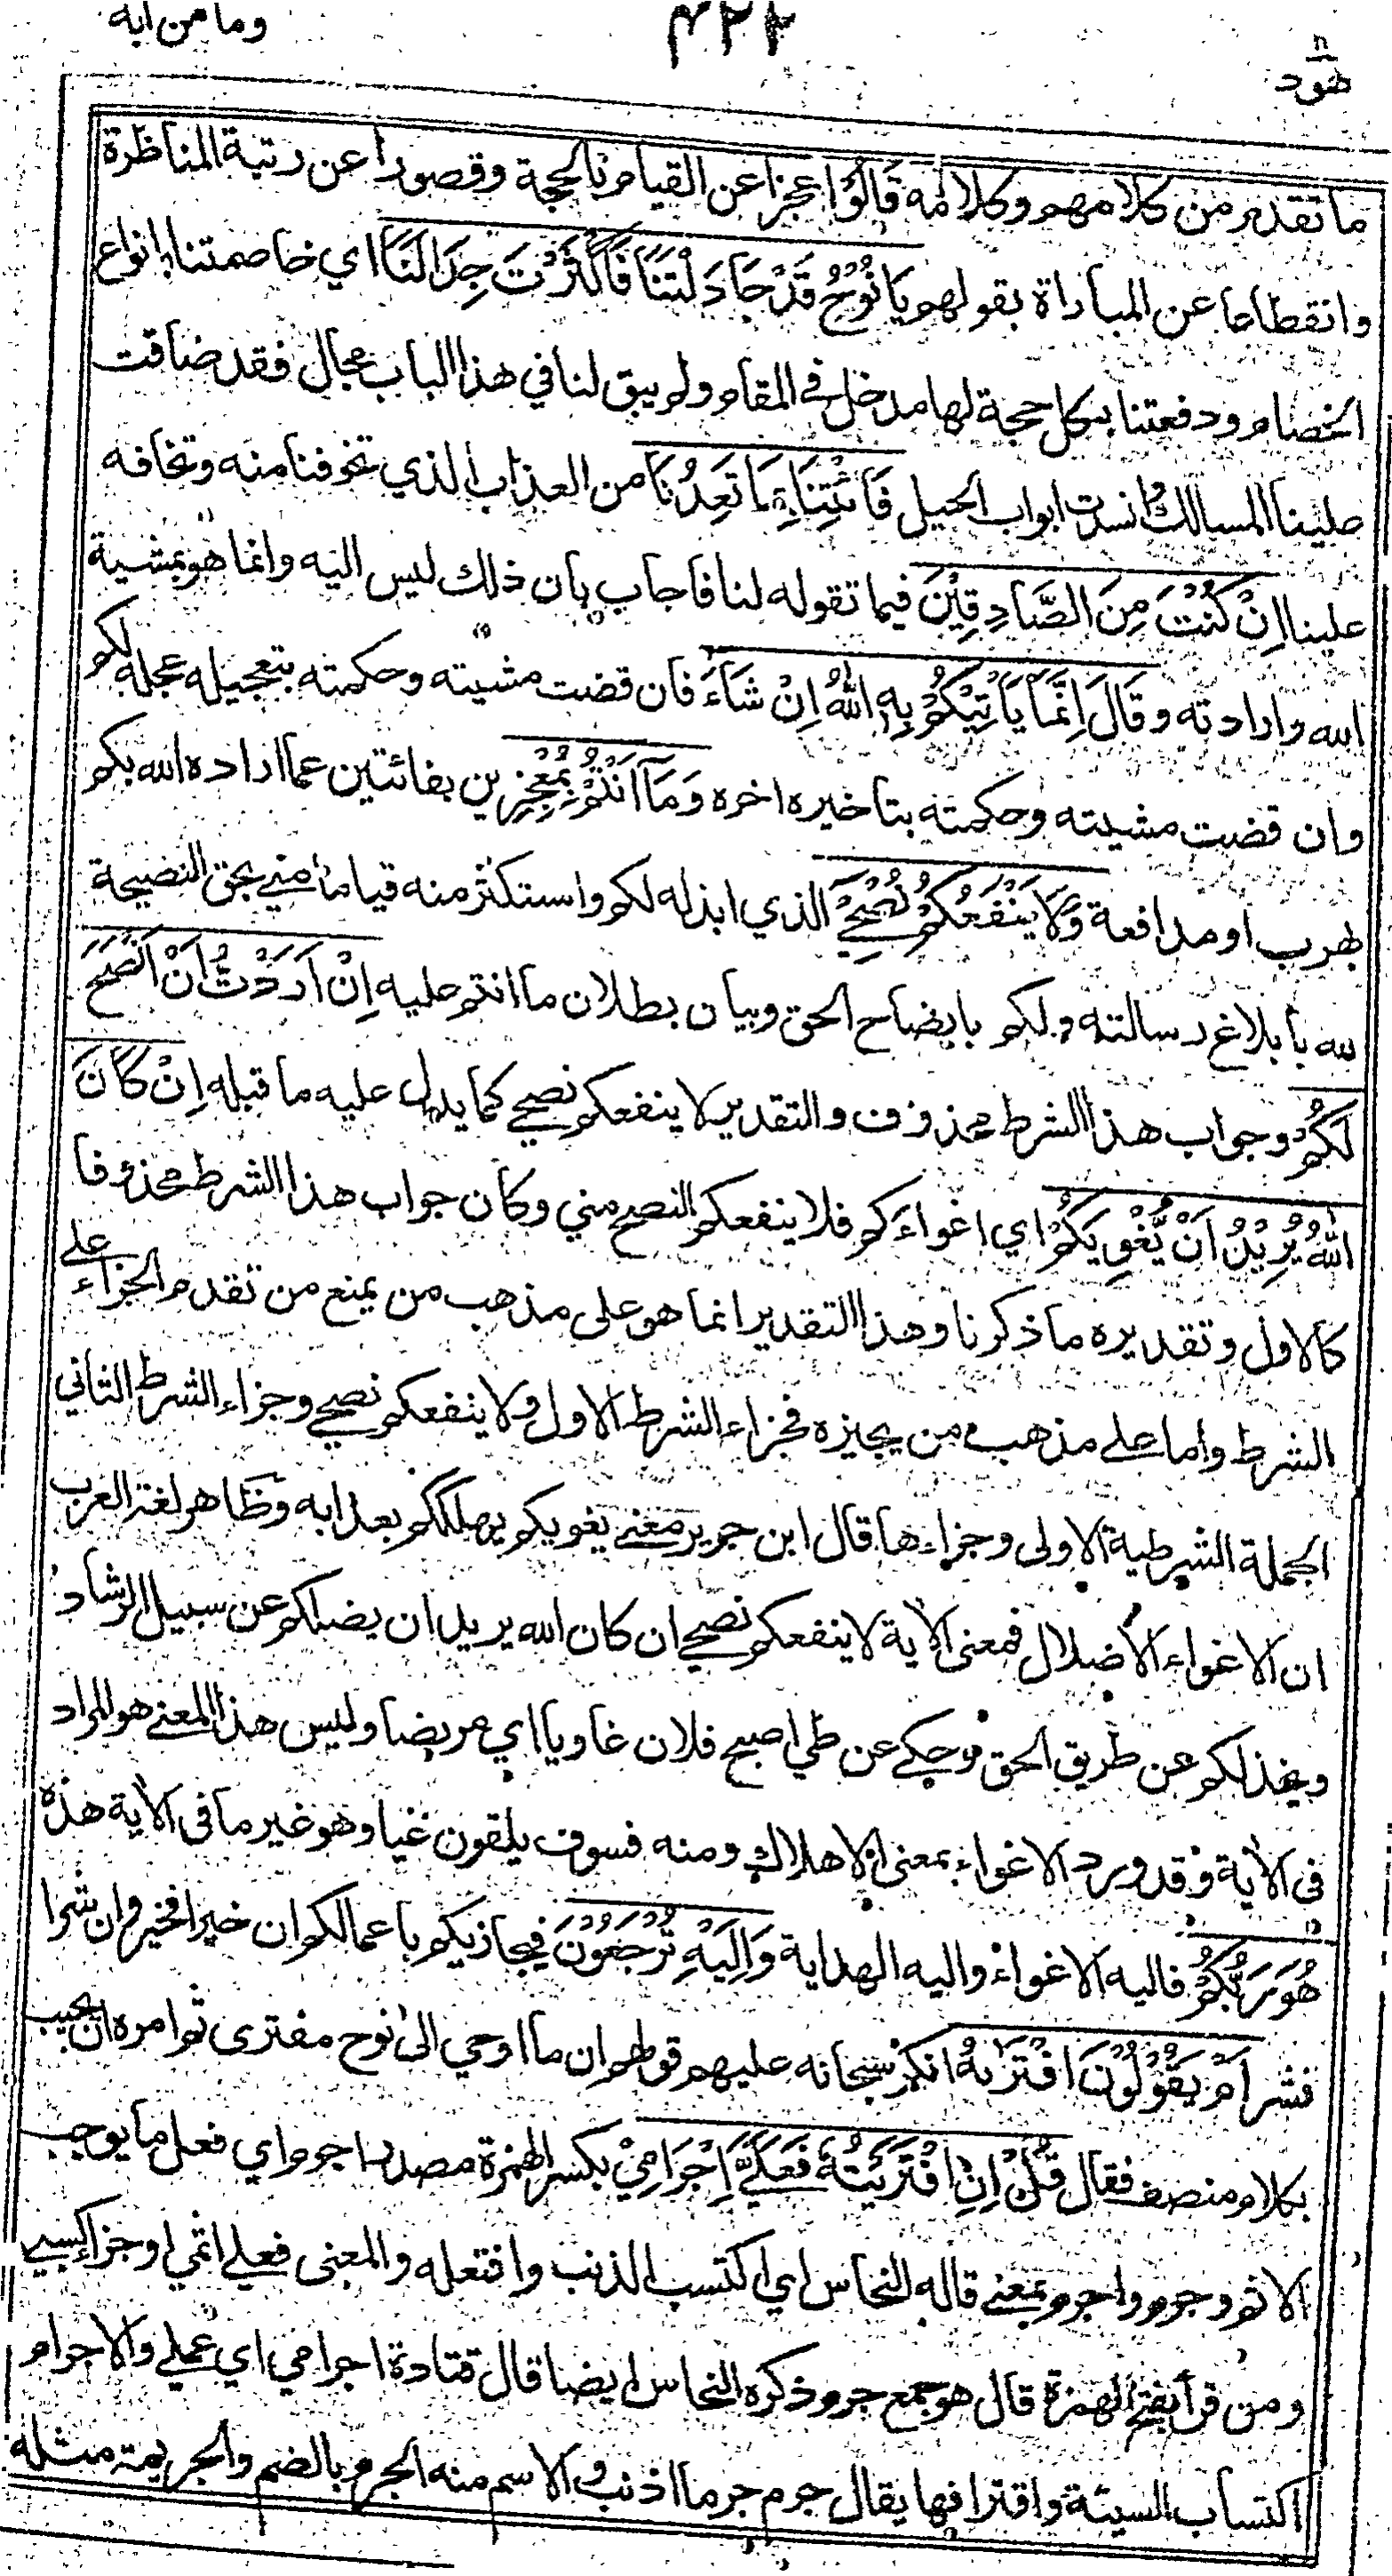 وما من دابة
٤٢٢
هود
ما تقدم من كلامهم وكلامه قَالُوْا عجزا عن القيام بالحجة وقصورا عن رتبة المناظرة
وانقطاعا عن المباراة بقولهم يَا نُوْحُ قَدْ جَادَلْتَنَا فَاَكْثَرْتَ جِدَالَنَا اي خاصمتنا بانواع
الخصام ودفعتنا بكل حجة لها مدخل في المقام ولم يبق لنا في هذا الباب مجال فقد ضاقت
علينا المسالك وانسدت ابواب الحيل فَأْتِنَا بِمَا تَعِدُنَا من العذاب الذي تخوفنا منه وتخافه
علينا اِنْ كُنْتَ مِنَ الصَّادِقِيْنَ فيما تقوله لنا فاجاب بان ذلك ليس اليه وانما هو بمشية
الله وارادته وقَالَ اِنَّمَا يَاْتِيْكُمْ بِهِ اللّٰهُ اِنْ شَاءَ فان قضت مشيته وحكمته بتعجيله عجله لكم
وان قضت مشيته وحكمته بتاخيره اخره وَمَا اَنْتُمْ بِمُعْجِزِيْن بفائتين عما اراده الله بكم
بهرب او مدافعة وَلَا يَنْفَعُكُمْ نُصْحِيْ الذي ابذله لكم واستكثر منه قياما مني بحق النصيحة
لله بابلاغ رسالته ولكم بايضاح الحق وبيان بطلان ما انتم عليه اِنْ اَرَدْتُّ اَنْ اَنْصَحَ
لَكُمْ وجواب هذا الشرط محذوف والتقدير لا ينفعكم نصحي كما يدل عليه ما قبله اِنْ كَانَ
اللّٰهُ يُرِيْدُ اَنْ يُّغْوِيَكُمْ اي اغواءكم فلا ينفعكم النصح مني وكان جواب هذا الشرط محذوفا
كالاول وتقديره ما ذكرنا وهذا التقدير انما هو على مذهب من يمنع من تقدم الجزاء على
الشرط واما على مذهب من يجيزه فجزاء الشرط الاول ولا ينفعكم نصحي وجزاء الشرط الثاني
الجملة الشرطية الاولى وجزاءها قال ابن جرير معنى يغويكم يهلككم بعذابه وظاهر لغة العرب
ان الاغواء الاضلال فمعنى الاية لا ينفعكم نصحي ان كان الله يريد ان يضلكم عن سبيل الرشاد
ويخذلكم عن طريق الحق وحكي عن طي اصبح فلان غاويا اي مريضا وليس هذا المعنى هو المراد
فى الاية وقد ورد الاغواء بمعنى الاهلاك ومنه فسوف يلقون غيا وهو غير ما فى الاية هذه
هُوَ رَبُّكُمْ فاليه الاغواء واليه الهداية وَاِلَيْهِ تُرْجَعُوْنَ فيجازيكم باعمالكم ان خيرا فخير وان شرا
فشر اَمْ يَقُوْلُوْنَ افْتَرٰىهُ انكر سبحانه عليهم قولهم ان ما اوحي الى نوح مفترى ثم امره ان يجيب
بكلام منصف فقال قُلْ اِنِ افْتَرَيْتُهُ فَعَلَيَّ اِجْرَامِيْ بكسر الهمزة مصدر اجرم اي فعل ما يوجب
الاثم وجرم واجرم بمعنى قاله النحاس اي اكتسب الذنب وافتعله والمعنى فعلي اثمي او جزاء كسبي
ومن قرأ بفتح الهمزة قال هو جمع جرم ذكره النحاس ايضا قال قتادة اجرامي اي عملي والاجرام
اكتساب السيئة واقترافها يقال جرم جرما اذنب والاسم منه الجرم بالضم والجريمة مثله